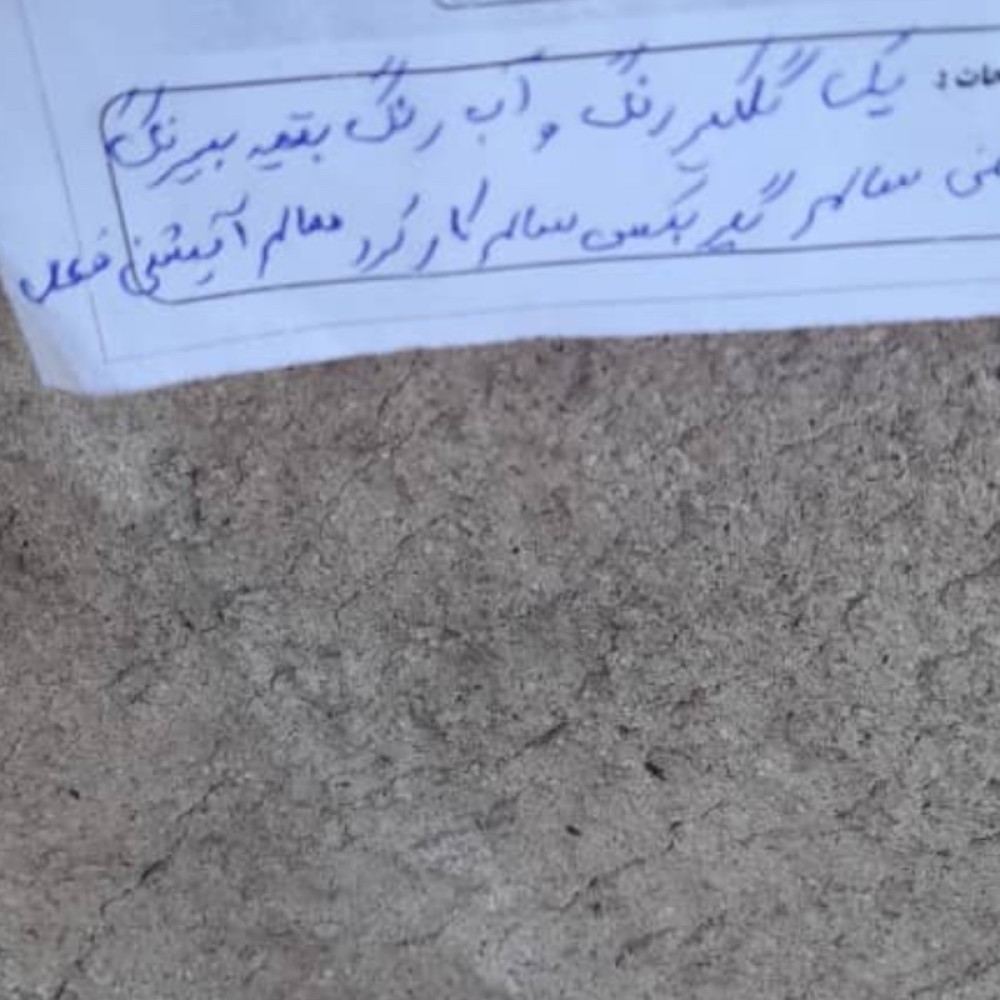 یک گلگیر رنگ و آب رنگ بقیه بیرنگ
سالم گیر بکس سالم کارکرد سالم آپشنی فعل